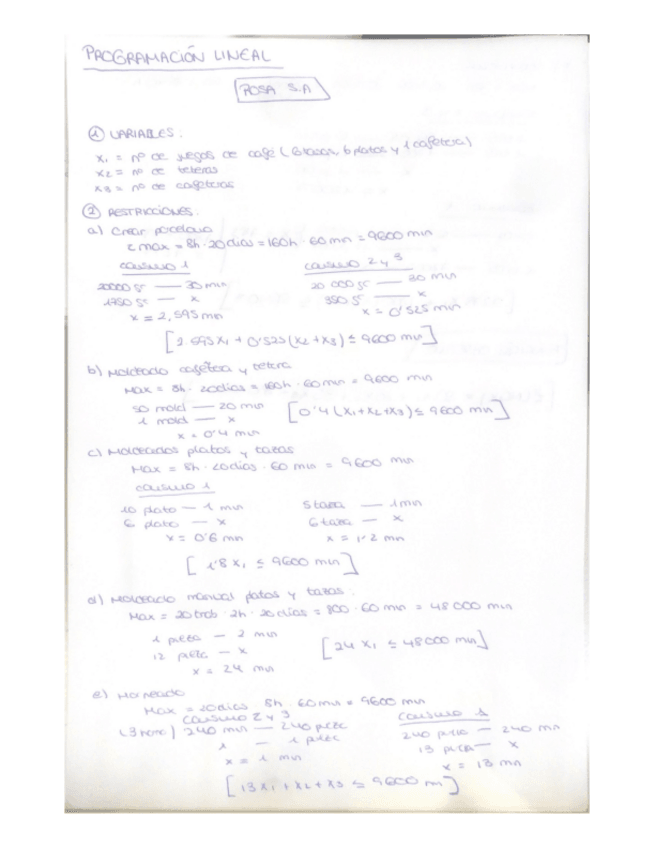 PROGRAMACIÓN LINEAL
POSA S.A
① VARIABLES:
X1 = nº de juegos de café (6 tazas, 6 platos y 1 cafetera)
X2 = nº de teteras
X3 = nº de cafeteras
② RESTRICCIONES:
a) Crear porcelana
t max = 8h · 20 dias = 160h · 60 min = 9600 min
consumo 1 consumo 2 y 3
20000 gr — 30 min 20 000 gr — 30 min
1750 gr — x 350 gr — x
x = 2,595 min x = 0'525 min
[2.595 X1 + 0'525 (X2 + X3) ≤ 9600 min]
b) Moldeado cafetera y tetera
Max = 8h · 20 dias = 160h · 60 min = 9600 min
50 mold — 20 min [0'4 (X1 + X2 + X3) ≤ 9600 min]
1 mold — x
x = 0'4 min
c) Moldeados platos y tazas
Max = 8h · 20 dias · 60 min = 9600 min
consumo 1
10 plato — 1 min 5 taza — 1 min
6 plato — x 6 taza — x
x = 0'6 min x = 1'2 min
[1'8 X1 ≤ 9600 min]
d) Moldeado manual platos y tazas:
Max = 20 trab · 2h · 20 dias = 800 · 60 min = 48000 min
1 pieza — 2 min
12 pieza — x [24 X1 ≤ 48000 min]
x = 24 min
e) Horneado
Max = 20 dias 8h · 60 min = 9600 min
consumo 2 y 3 consumo 1
240 min — 240 pieza 240 pieza — 240 min
1 — 1 pieza 13 pieza — x
x = 1 min x = 13 min
[13 X1 + X2 + X3 ≤ 9600 m]